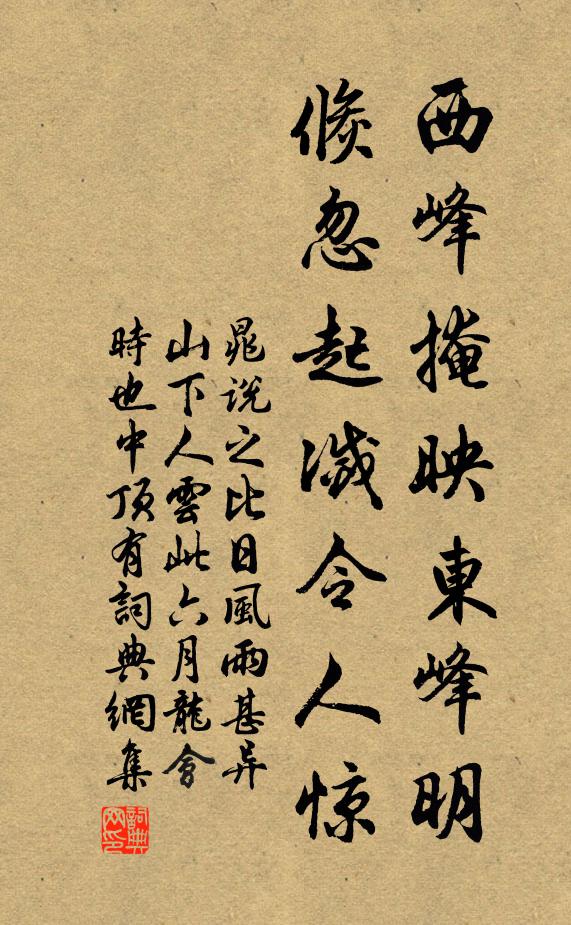 西峰掩映東峰明
倐忽起滅令人惊
晁說之比日風雨甚异
山下人雲此六月龍會
時也中頂有詞典網集
詞典网印